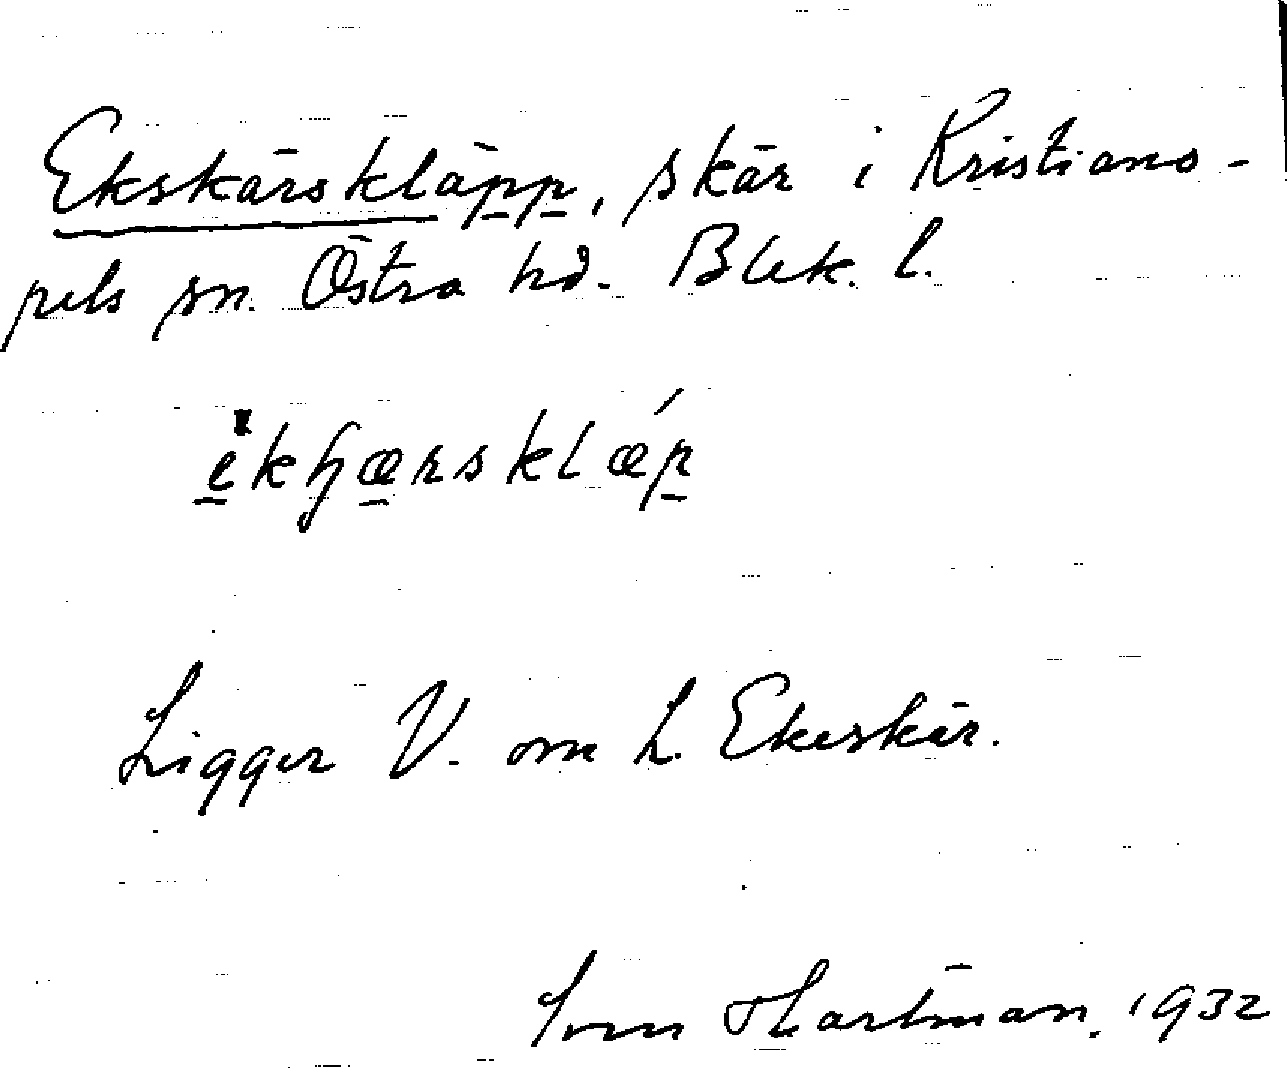 Ekskärskläpp, skär i Kristiano-
pels sn. Östra hd. Blek. l.
ekɧærsklæp
Ligger V. om L. Ekeskär.
Sven Hartman. 1932